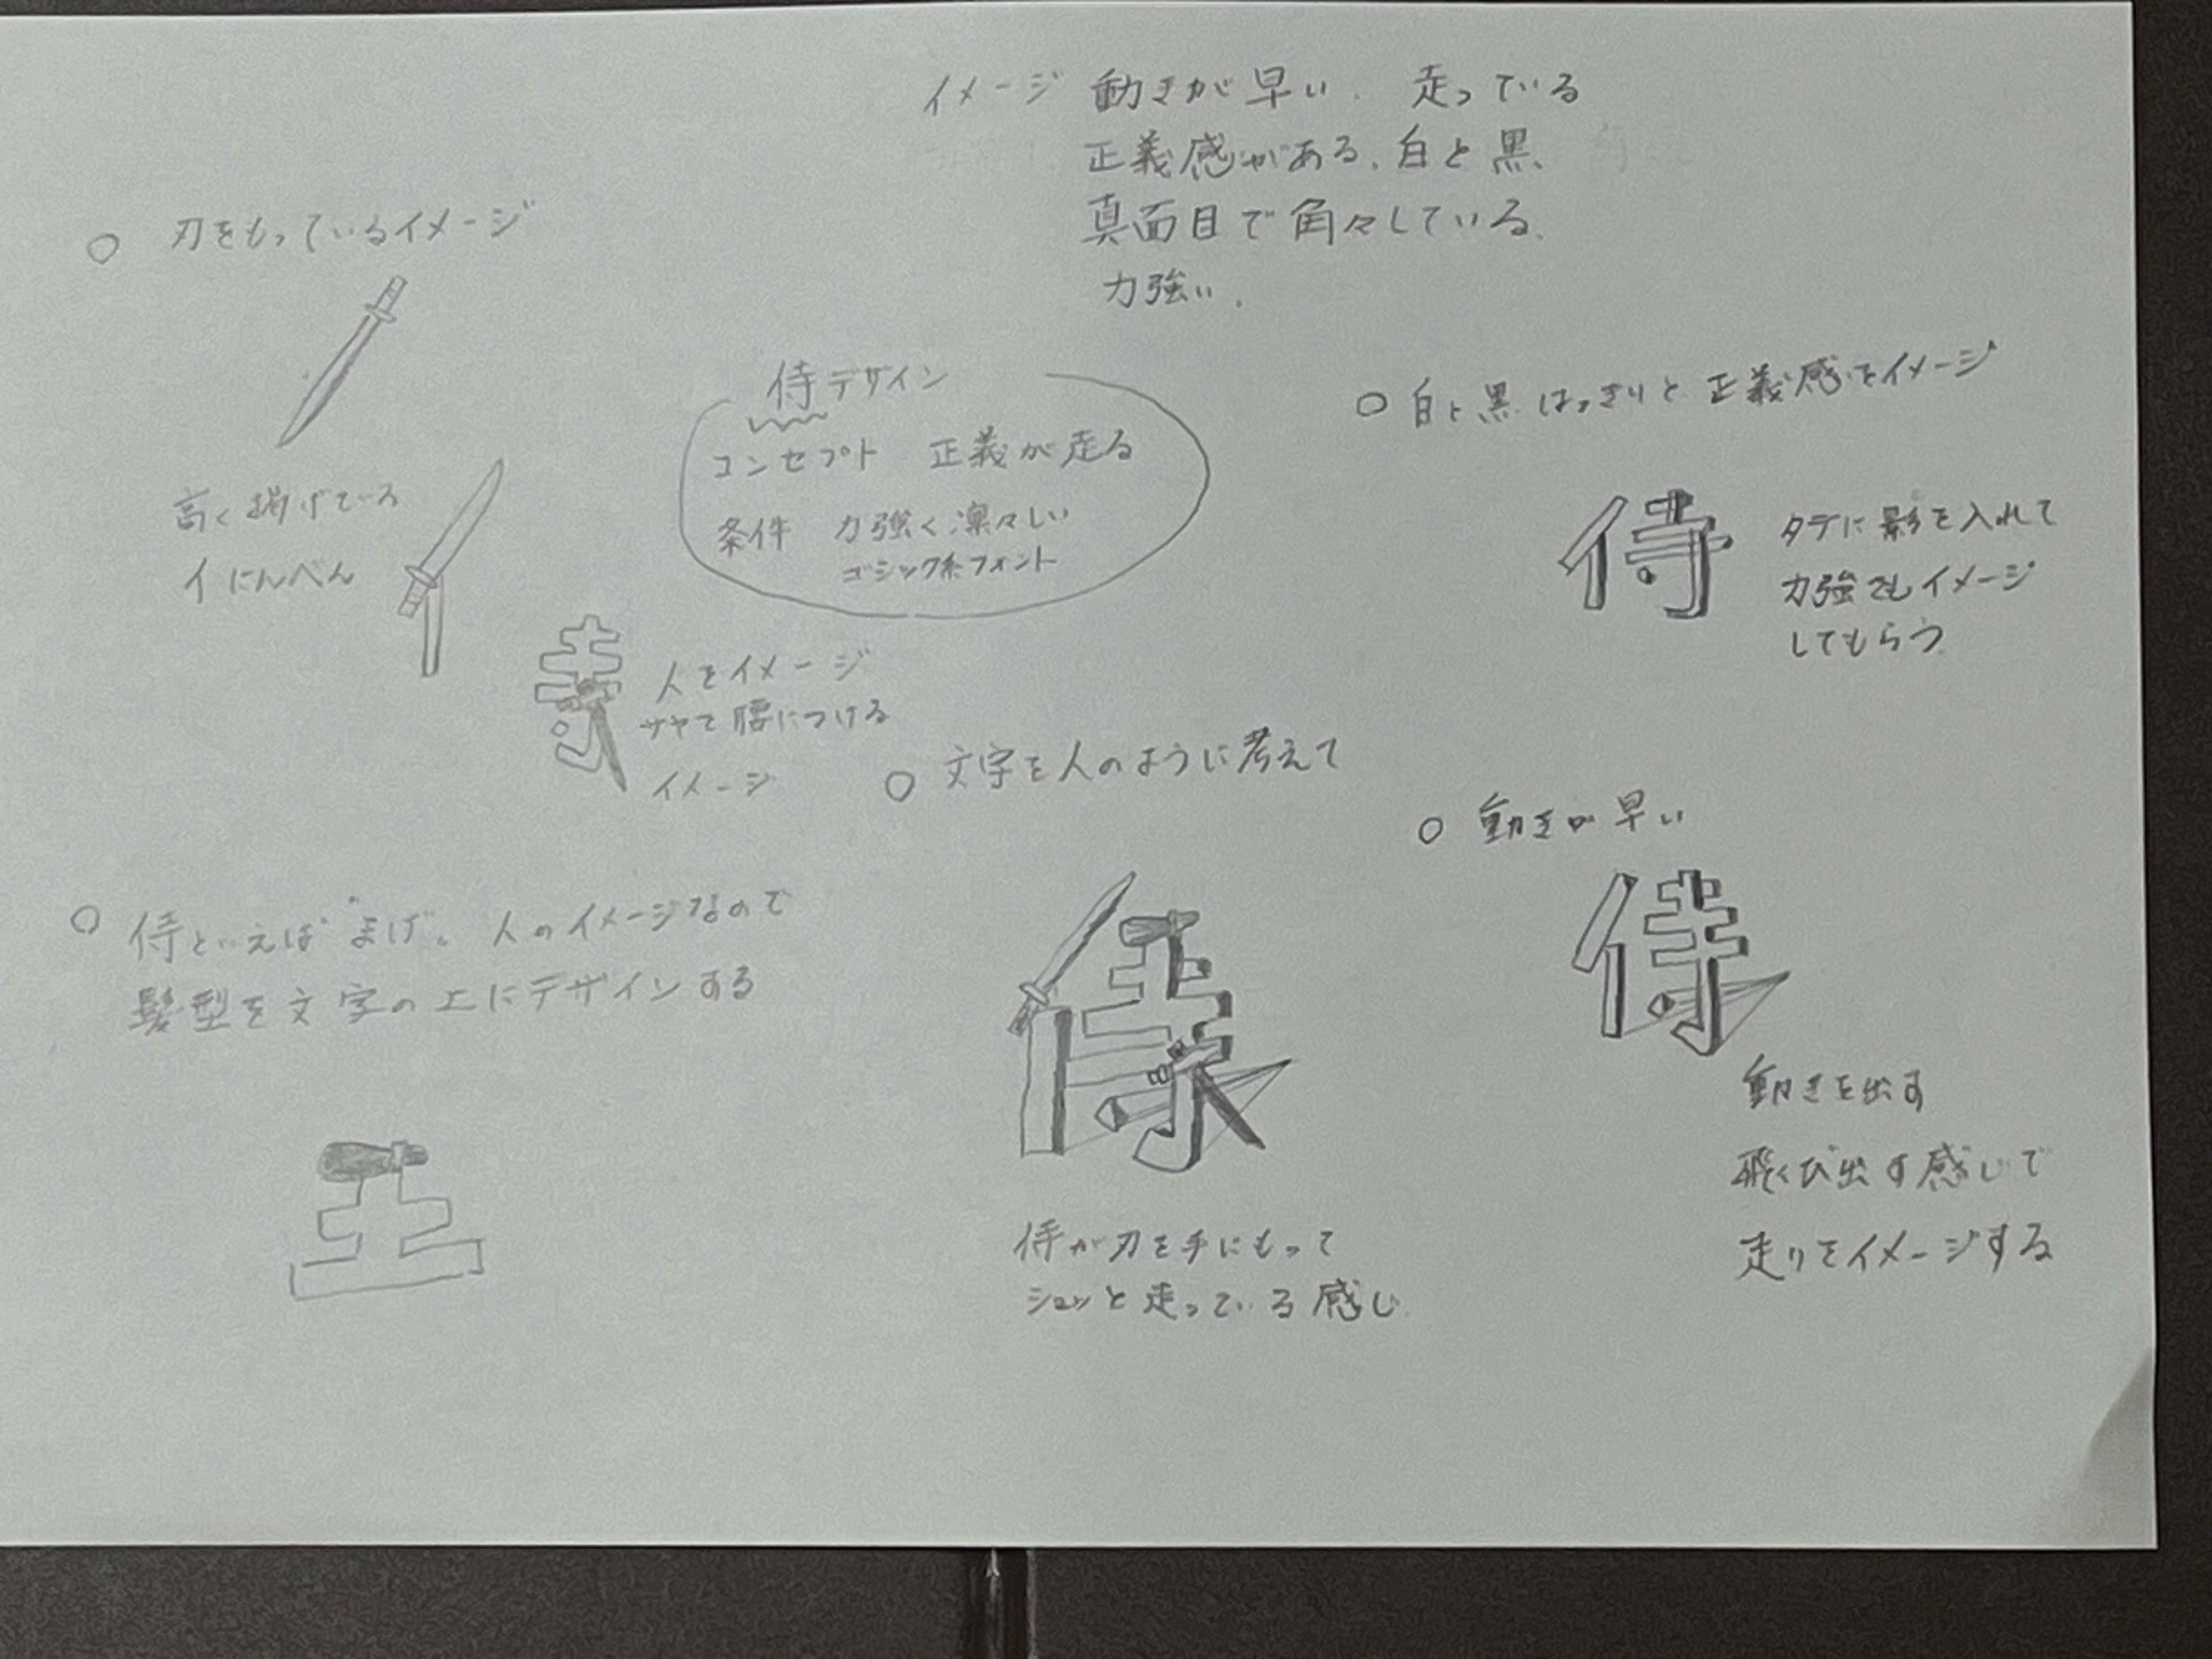 イメージ 動きが早い. 走っている
正義感がある. 白と黒、
真面目で角々している.
力強い.
○ 刃をもっているイメージ
高く掲げている
イ にんべん
侍デザイン
コンセプト 正義が走る
条件 力強く凛々しい
ゴシック系フォント
人をイメージ
サヤで腰につける
イメージ
○ 白と黒 はっきりと 正義感をイメージ
侍
タテに影を入れて
力強さもイメージ
してもらう
○ 侍といえば"まげ"。人のイメージなので
髪型を文字の上にデザインする
○ 文字を人のように考えて
侍
侍が刃を手にもって
シュッと走っている感じ.
○ 動きが早い
侍
動きを出す
飛び出す感じで
走りをイメージする